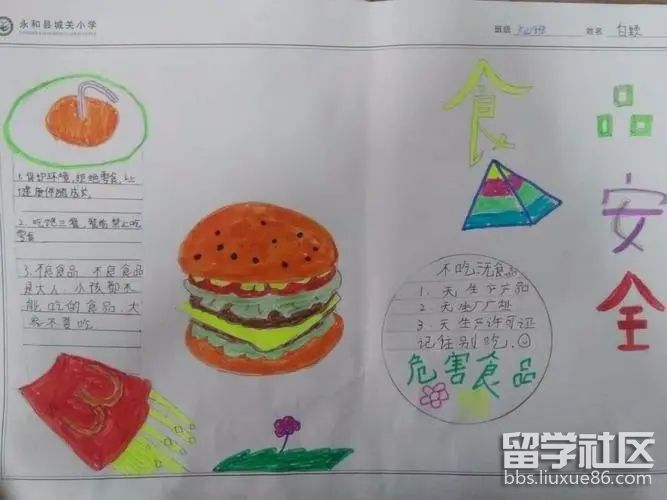 永和县城关小学
班级
姓名
食品安全
1.保护环境,拒绝零食,让
健康伴随成长。
2.吃饱三餐,禁止吃
零食
3.不良食品 不良食品
是大人、小孩都不
能吃的食品,大
家不要吃。
不吃三无食品
1.无生产产品
2.无生产厂址
3.无生产许可证
记住别吃。
危害食品
留学社区
bbs.liuxue86.com